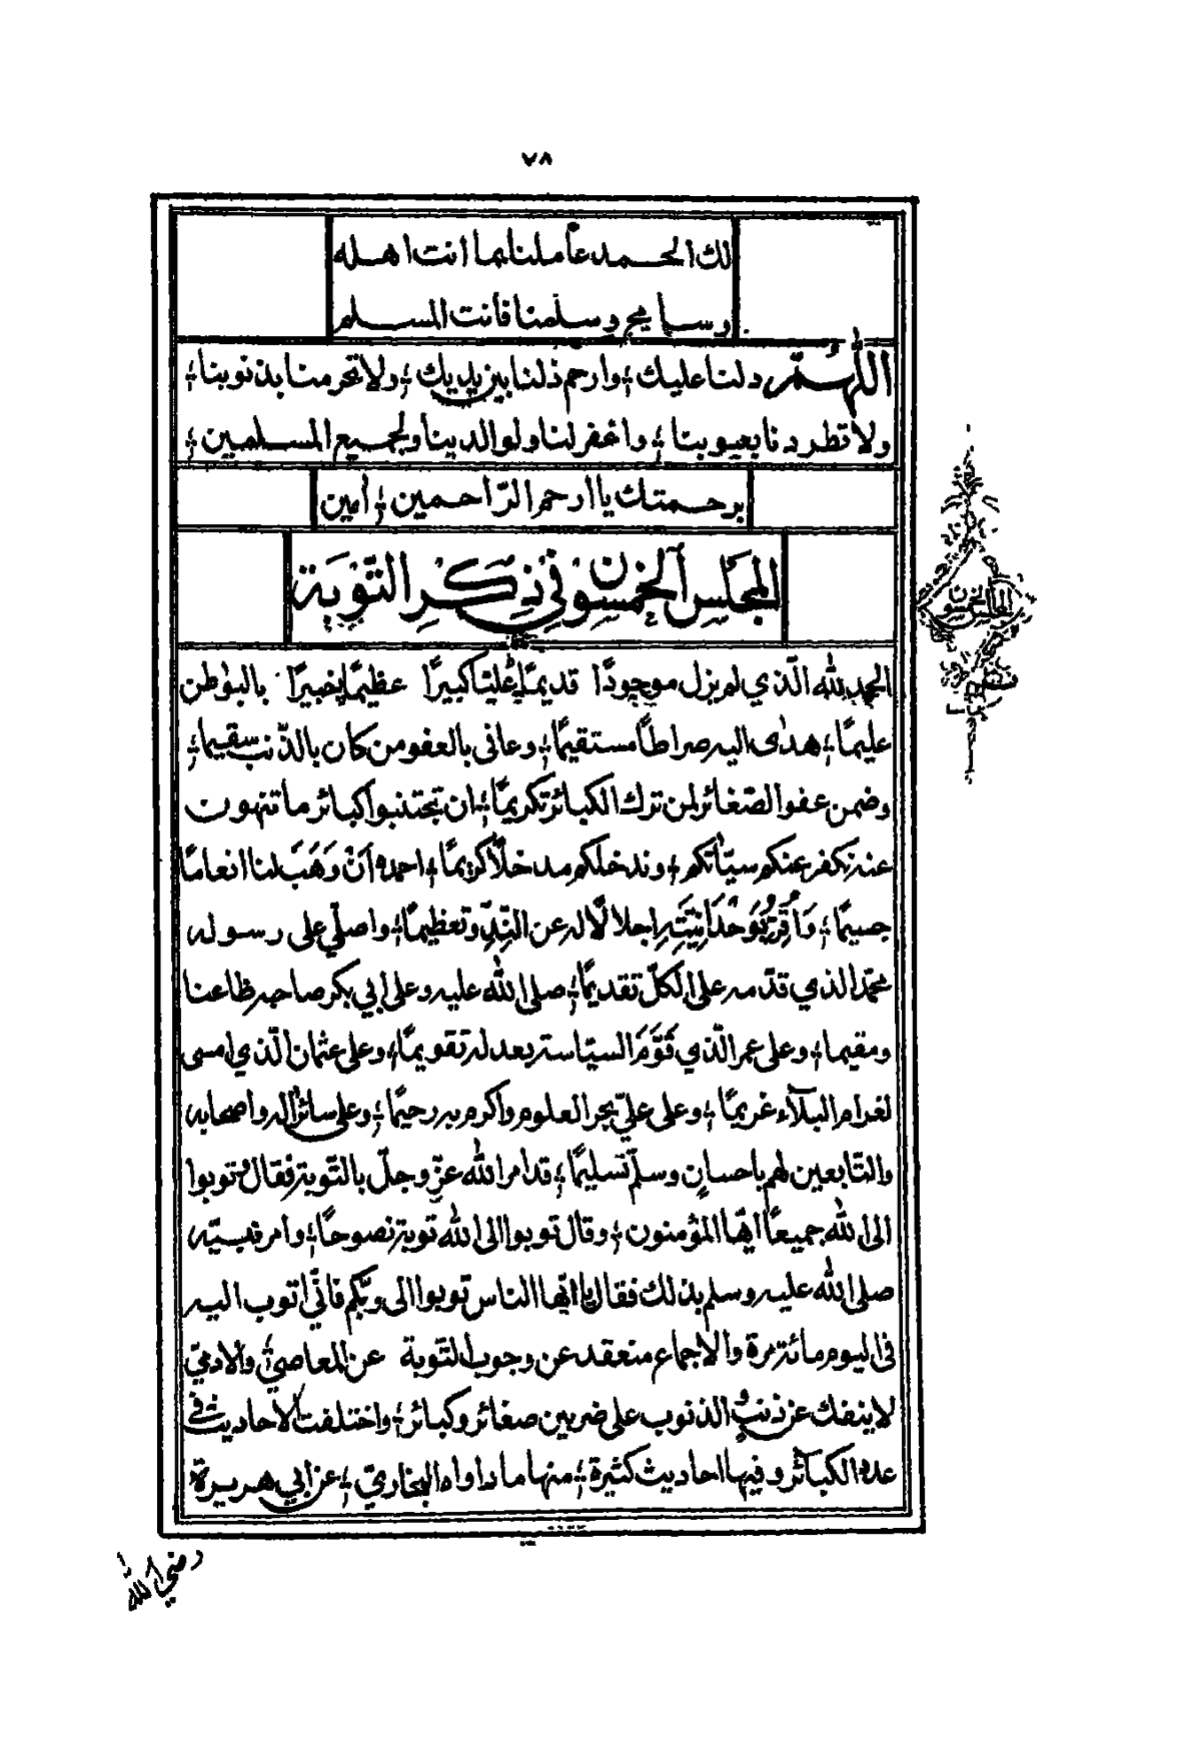 ٧٨
لك الحمد عاملنا بما انت اهله
وسامح وسلمنا فانت المسلم
اللهم دلنا عليك ؛ وارحم ذلنا بين يديك ؛ ولا تحرمنا بذنوبنا ؛
ولا تطردنا بعيوبنا ؛ واغفر لنا ولوالدينا ولجميع المسلمين ؛
برحمتك يا ارحم الرّاحمين ؛ امين
المجلس الخمسون في ذكر التّوبة
الحمد لله الّذي لم يزل موجودًا قديمًا عليًّا كبيرًا عظيمًا خبيرًا بالبواطن
عليمًا ؛ هدى اليه صراطًا مستقيمًا ؛ وعافى بالعفو من كان بالذّنب سقيما ؛
وضمن عفو الصّغائر لمن ترك الكبائر تكريمًا ؛ ان تجتنبوا كبائر ما تنهون
عنه نكفر عنكم سيّأتكم ؛ وندخلكم مدخلًا كريمًا ؛ احمده اَنْ وَهَبَ لنا انعامًا
جسيمًا ؛ وَاُقِرُّ بِوَحْدَانِيَّتِهِ اجلالًا له عن النِّدِّ وتعظيمًا ؛ واصلّي على رسوله
محمّد الذي قدّمه على الكلّ تقديمًا ؛ صلى الله عليه وعلى ابي بكر صاحبه ظاعنا
ومقيما ؛ وعلى عمر الّذي قَوَّمَ السيّاسة بعدله تقويمًا ؛ وعلى عثمان الّذي امسى
لغرام البلآء غريمًا ؛ وعلى عليّ بحر العلوم واكرم به رحيمًا ؛ وعلى سائر اله واصحابه
والتّابعين لهم باحسانٍ وسلّم تسليمًا ؛ قد امر الله عزّ وجلّ بالتّوبة فقال وتوبوا
الى الله جميعًا ايّها المؤمنون ؛ وقال توبوا الى الله توبة نصوحًا ؛ وامر نبيّه
صلى الله عليه وسلم بذلك فقال يا ايّها الناس توبوا الى ربّكم فانّي اتوب اليه
فى اليوم مائة مرة والاجماع منعقد عن وجوب التّوبة عن المعاصي ؛ والادميّ
لا ينفك عن ذنبٍ و الذنوب على ضربين صغائر وكبائر ؛ واختلفت الاحاديث في
عده الكبآئر وفيها احاديث كثيرة ؛ منها ما رواه البخاريّ ؛ عن ابي هريرة
رضي الله
المجلس الخمسون